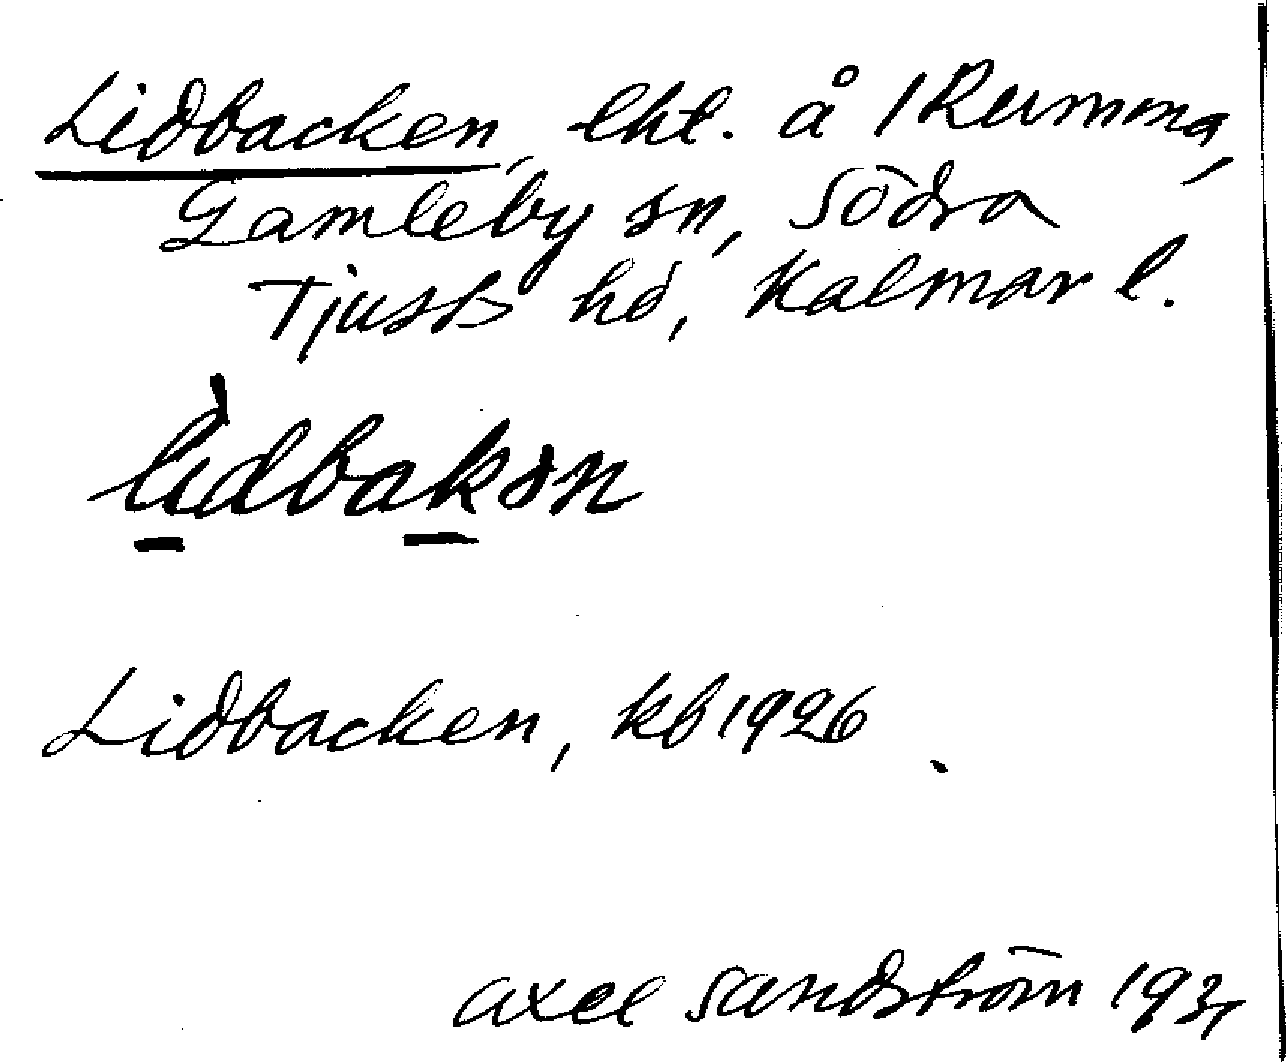 Lidbacken, lht. å 1 Rumma,
Gamleby sn, Södra
Tjusts hd, Kalmar l.
lìdbakən
Lidbacken, kb 1926
Axel Sandström 193